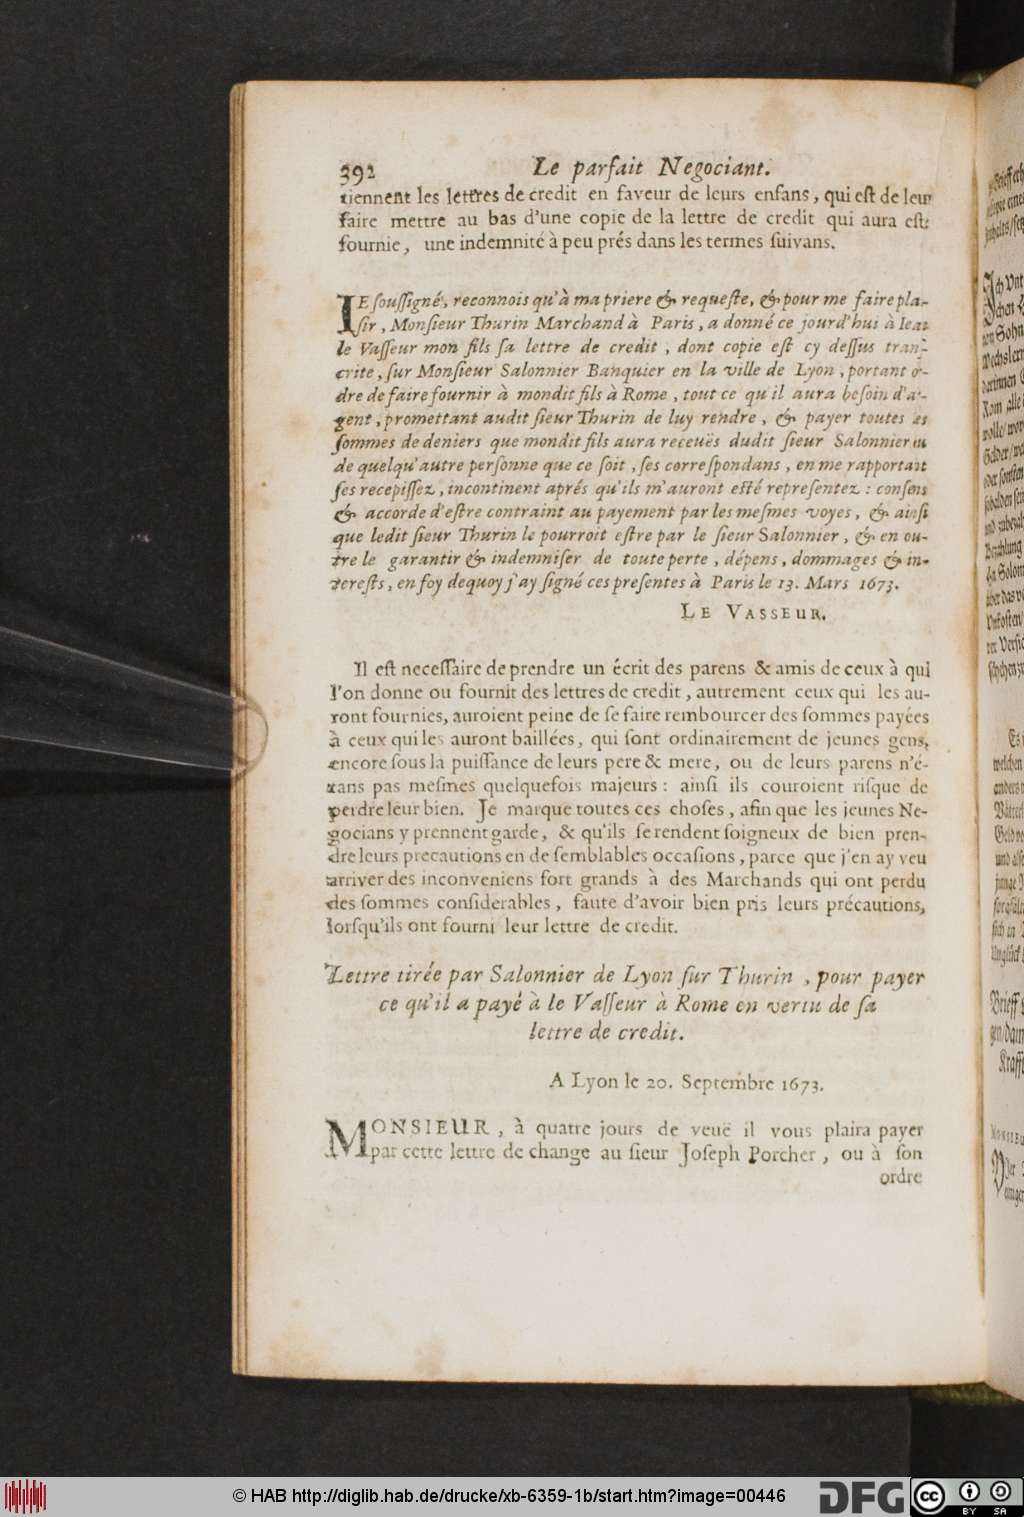 392 Le parfait Negociant.
tiennent les lettres de credit en faveur de leurs enfans, qui est de leur
faire mettre au bas d'une copie de la lettre de credit qui aura esté
fournie, une indemnité à peu prés dans les termes suivans.
IE soussigné, reconnois qu'à ma priere & requeste, & pour me faire plai-
sir, Monsieur Thurin Marchand à Paris, a donné ce jourd'hui à Iean
le Vasseur mon fils sa lettre de credit, dont copie est cy dessus trans-
crite, sur Monsieur Salonnier Banquier en la ville de Lyon, portant or-
dre de faire fournir à mondit fils à Rome, tout ce qu'il aura besoin d'ar-
gent, promettant audit sieur Thurin de luy rendre, & payer toutes les
sommes de deniers que mondit fils aura receuës dudit sieur Salonnier ou
de quelqu'autre personne que ce soit, ses correspondans, en me rapportant
ses recepissez, incontinent aprés qu'ils m'auront esté representez: consens
& accorde d'estre contraint au payement par les mesmes voyes, & ainsi
que ledit sieur Thurin le pourroit estre par le sieur Salonnier, & en ou-
tre le garantir & indemniser de toute perte, dépens, dommages & in-
terests, en foy dequoy j'ay signé ces presentes à Paris le 13. Mars 1673.
LE VASSEUR.
Il est necessaire de prendre un écrit des parens & amis de ceux à qui
l'on donne ou fournit des lettres de credit, autrement ceux qui les au-
ront fournies, auroient peine de se faire rembourcer des sommes payées
à ceux qui les auront baillées, qui sont ordinairement de jeunes gens,
encore sous la puissance de leurs pere & mere, ou de leurs parens n'é-
tans pas mesmes quelquefois majeurs: ainsi ils couroient risque de
perdre leur bien. Je marque toutes ces choses, afin que les jeunes Ne-
gocians y prennent garde, & qu'ils se rendent soigneux de bien pren-
dre leurs precautions en de semblables occasions, parce que j'en ay veu
arriver des inconveniens fort grands à des Marchands qui ont perdu
des sommes considerables, faute d'avoir bien pris leurs précautions,
lorsqu'ils ont fourni leur lettre de credit.
Lettre tirée par Salonnier de Lyon sur Thurin, pour payer
ce qu'il a payé à le Vasseur à Rome en vertu de sa
lettre de credit.
A Lyon le 20. Septembre 1673.
MONSIEUR, à quatre jours de veuë il vous plaira payer
par cette lettre de change au sieur Joseph Porcher, ou à son
ordre
© HAB http://diglib.hab.de/drucke/xb-6359-1b/start.htm?image=00446
DFG
cc BY SA